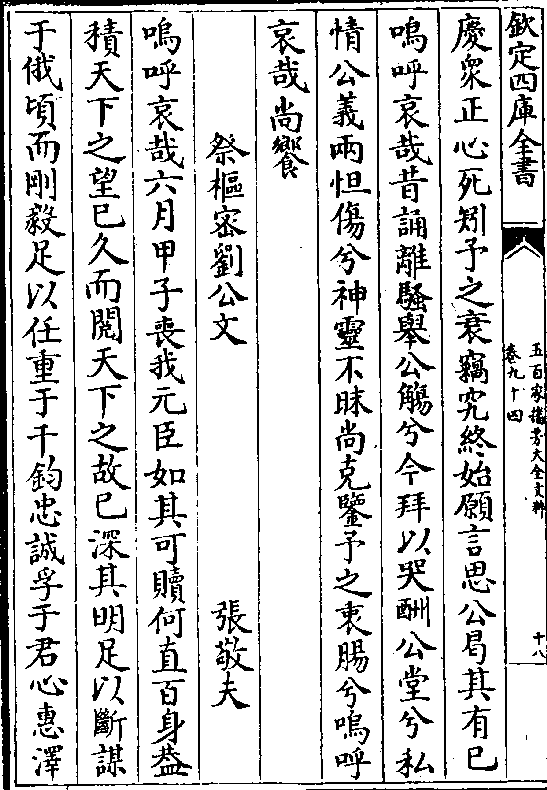 欽定四庫全書
五百家播芳大全文粹
卷九十四
十八
慶衆正心死矧予之衰竊究終始願言思公曷其有已
嗚呼哀哉昔誦離騷舉公觴兮今拜以哭酬公堂兮私
情公義兩怛傷兮神靈不昧尚克鑒予之衷腸兮嗚呼
哀哉尚饗
祭樞密劉公文 張敬夫
嗚呼哀哉六月甲子喪我元臣如其可贖何直百身蓋
積天下之望已久而閱天下之故已深其明足以斷謀
于俄頃而剛毅足以任重于千鈞忠誠孚于君心惠澤